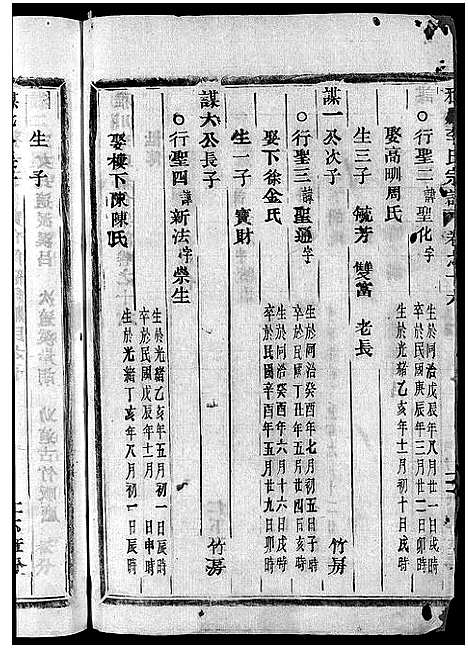 李氏宗譜
○行聖二諱聖化字
生於同治戊辰年八月廿一日戌時
卒於民國庚辰年三月廿二日卯時
娶高嶼周氏
生於光緒乙亥年十一月初十日戌時
生三子 毓芳 雙富 老長
謀一公次子
竹房
○行聖三諱聖通字
生於同治癸酉年七月初五日子時
娶下徐金氏
生於同治癸酉年六月十六日戌時
卒於民國辛酉年五月廿九日卯時
生一子 寳財
謀六公長子
竹房
○行聖四諱新法字崇生
生於光緒乙亥年五月初一日辰時
卒於民國戊辰年十一月 日申時
娶樓下陳陳氏
生於光緒丁亥年八月初一日辰時
生子